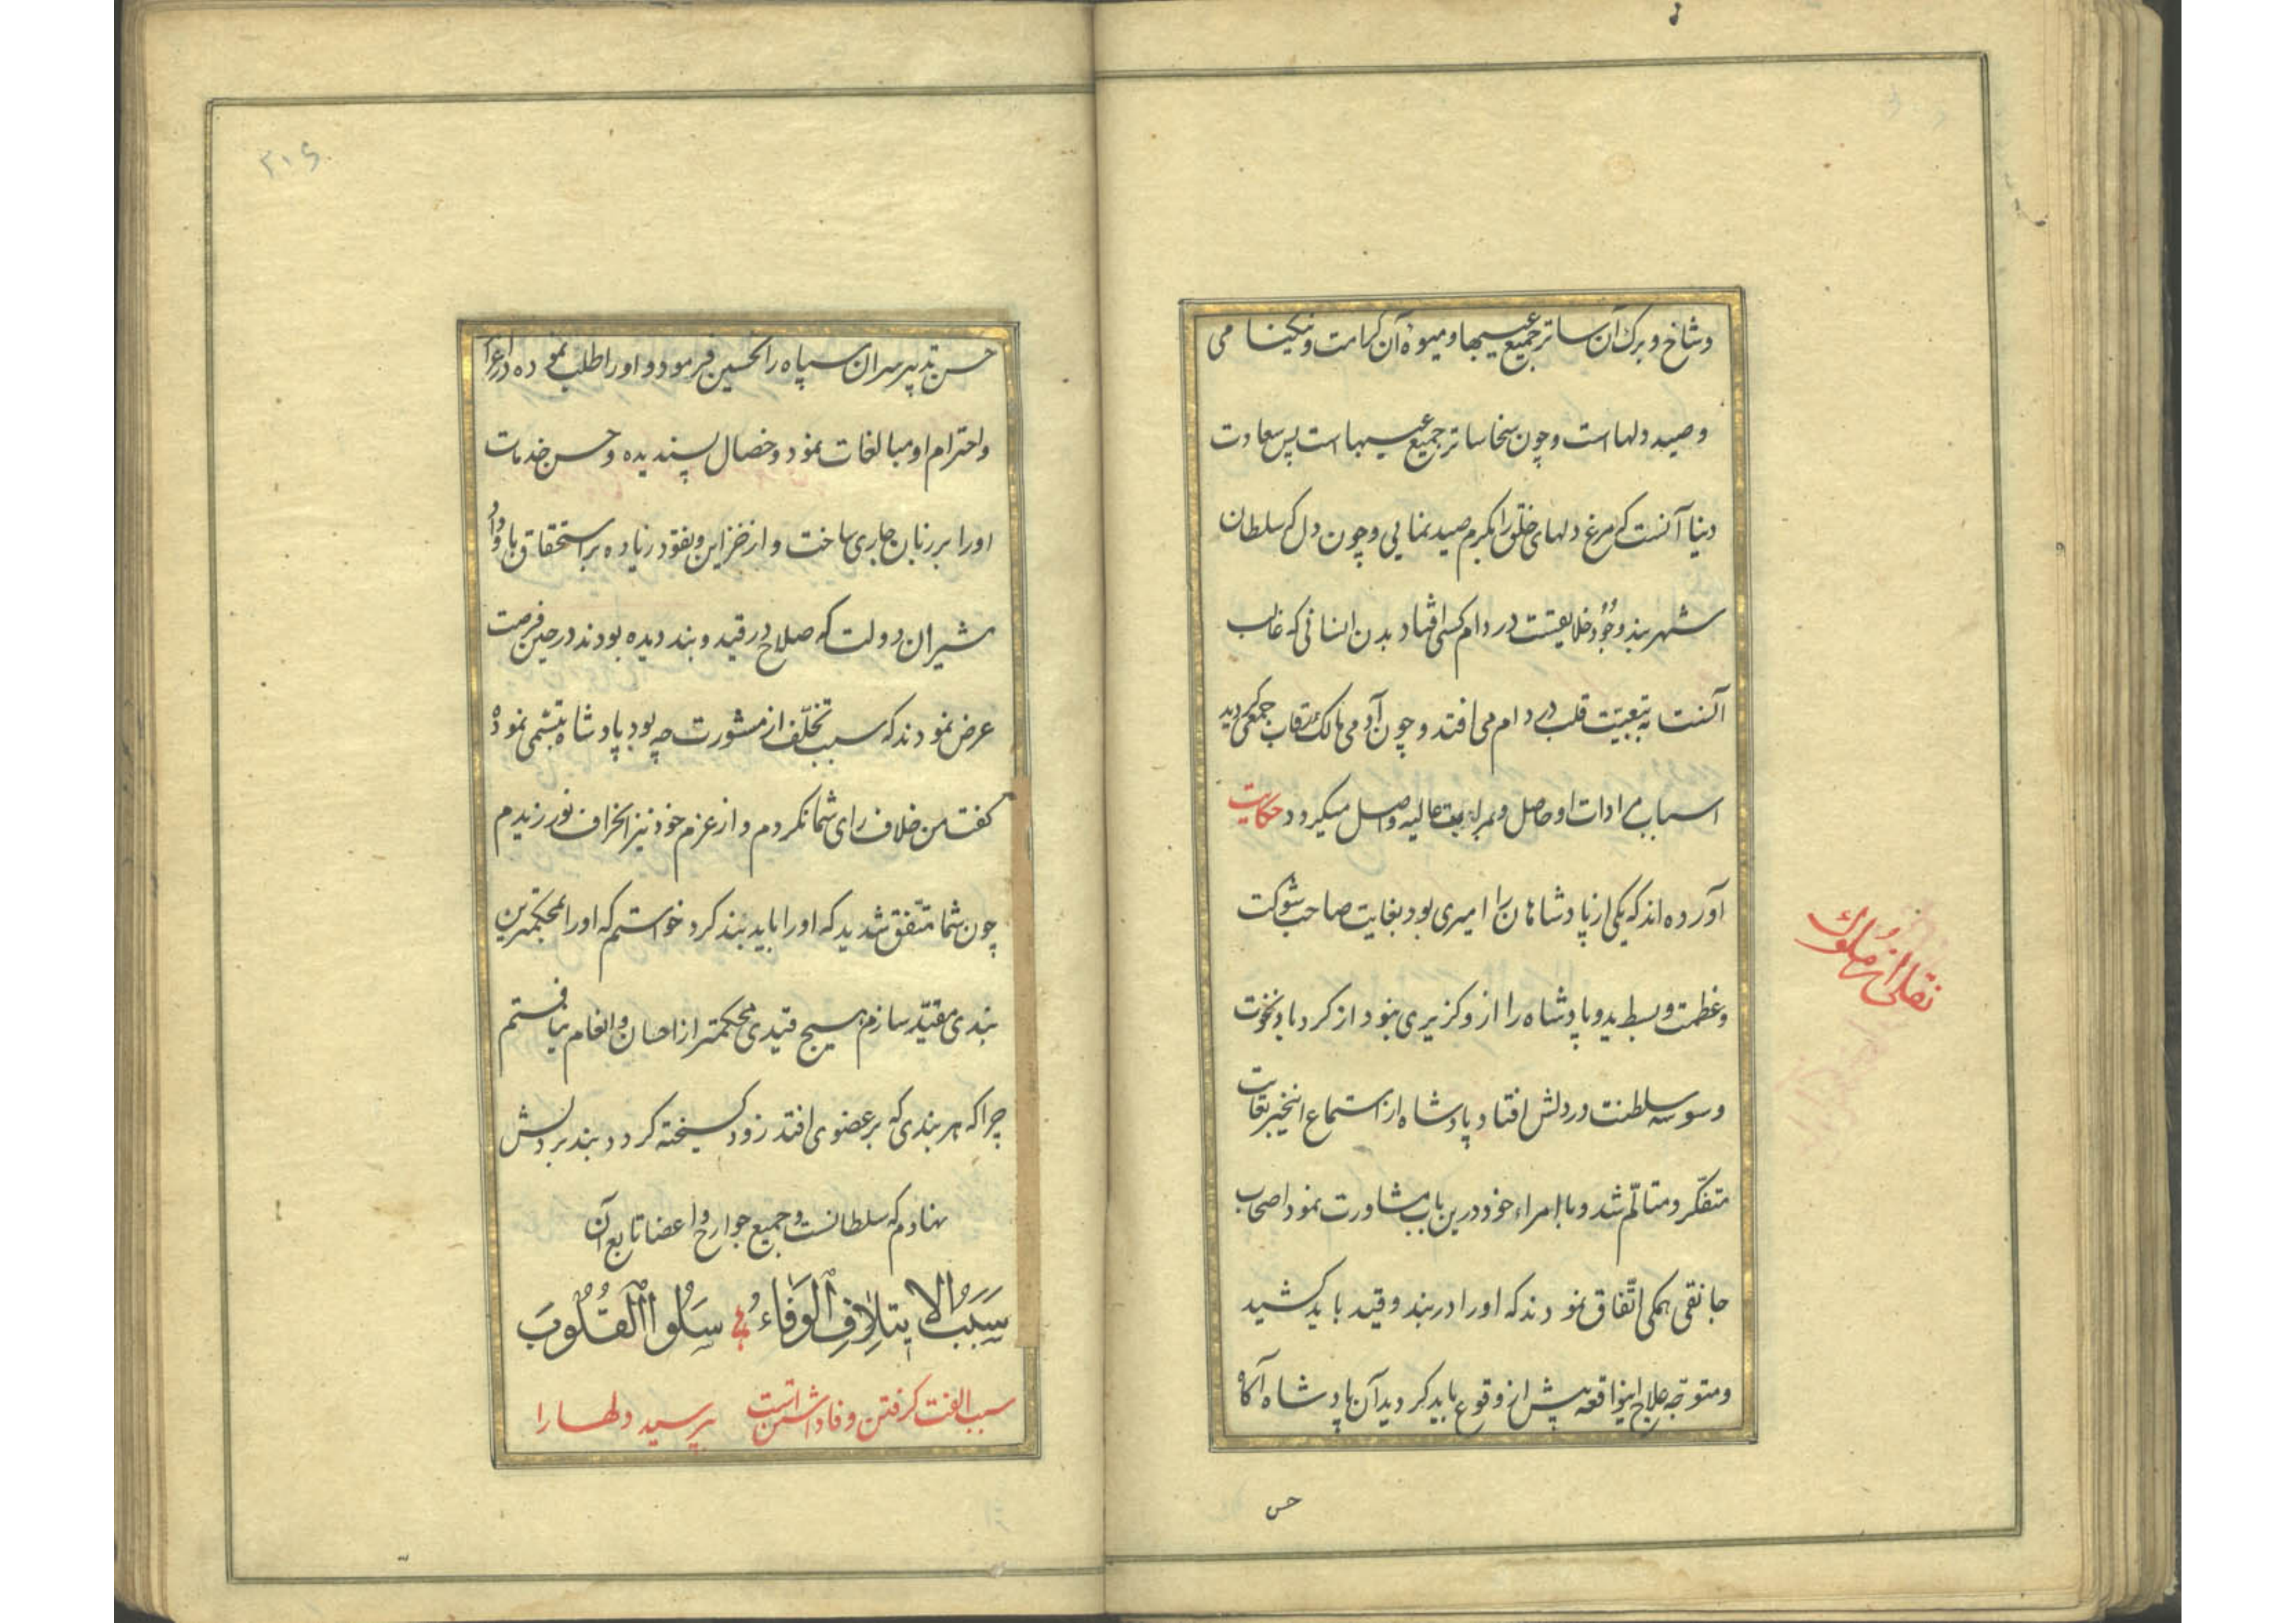 وشاخ و برک آن ساتر جمیع عیبها و میوهٔ آن کرامت و نیکینامی
و صید دلهاست و چون سخا ساتر جمیع عیبهاست پس سعادت
دنیا آنست که مرغ دلهای خلق را بکرم صید نمایی و چون دل که سلطان
شهربند وجود خلایقست در دام کسی افتاد بدن انسانی که غالب
آنست به تبعیّت قلب در دام می افتد و چون آدمی مالک رقاب جمعی کردید
اسباب مرادات او حاصل و بمراتب عالیه واصل میکردد حکایت
آورده اند که یکی از پادشاهان را امیری بود بغایت صاحب شوکت
وعظمت و بسط ید و پادشاه را از و کزیری نبود از کرد باد نخوت
وسوسه سلطنت در دلش افتاد پادشاه از استماع اینخبر بغایت
متفکّر و متالّم شد و با امراء خود درین باب مشاورت نمود اصحاب
جانقی همکی اتّفاق نمودند که او را در بند و قید باید کشید
و متوجّه علاج اینواقعه پیش از وقوع باید کردید آن پادشاه آکاه
نقل از ملوک
حس
۲۰۶
حسن تدبیر سران سپاه را تحسین فرمود و او را طلب نموده در اعزاز
و احترام او مبالغات نمود و خصال پسندیده و حسن خدمات
او را بر زبان جاری ساخت و از خزاین و نقود زیاده بر استحقاق باو داد
مشیران دولت که صلاح در قید و بند دیده بودند در حین فرصت
عرض نمودند که سبب تخلّف از مشورت چه بود پادشاه تبسّمی نمود
کفت من خلاف رای شما نکردم و از عزم خود نیز انحراف نورزیدم
چون شما متّفق شدید که او را باید بند کرد خواستم که او را بمحکمترین
بندی مقیّد سازم هیچ قیدی محکمتر از احسان و انعام نیافتم
چرا که هر بندی که بر عضوی افتد زود کسیخته کردد بند بر دلش
نهادم که سلطانست و جمیع جوارح و اعضا تابع آن
سَبَبُ الایتِلافِ الوَفاءُ سَلُوا القُلُوبَ
سبب الفت کرفتن وفا داشتن است بپرسید دلها را